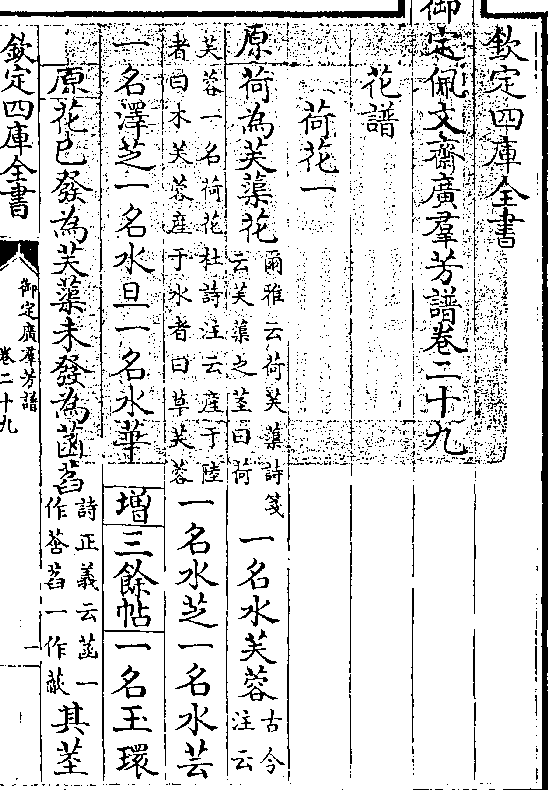 欽定四庫全書
御定佩文齋廣羣芳譜卷二十九
花譜
荷花一
原荷為芙蕖花爾雅云荷芙蕖詩箋云芙蕖之莖曰荷一名水芙蓉古今注云
芙蓉一名荷花杜詩注云産于陸者曰木芙蓉産于水者曰草芙蓉一名水芝一名水芸
一名澤芝一名水旦一名水華增三餘帖一名玉環
原花已發為芙蕖未發為菡萏詩正義云菡一作莟萏一作歃其莖
欽定四庫全書
御定廣羣芳譜
卷二十九
一